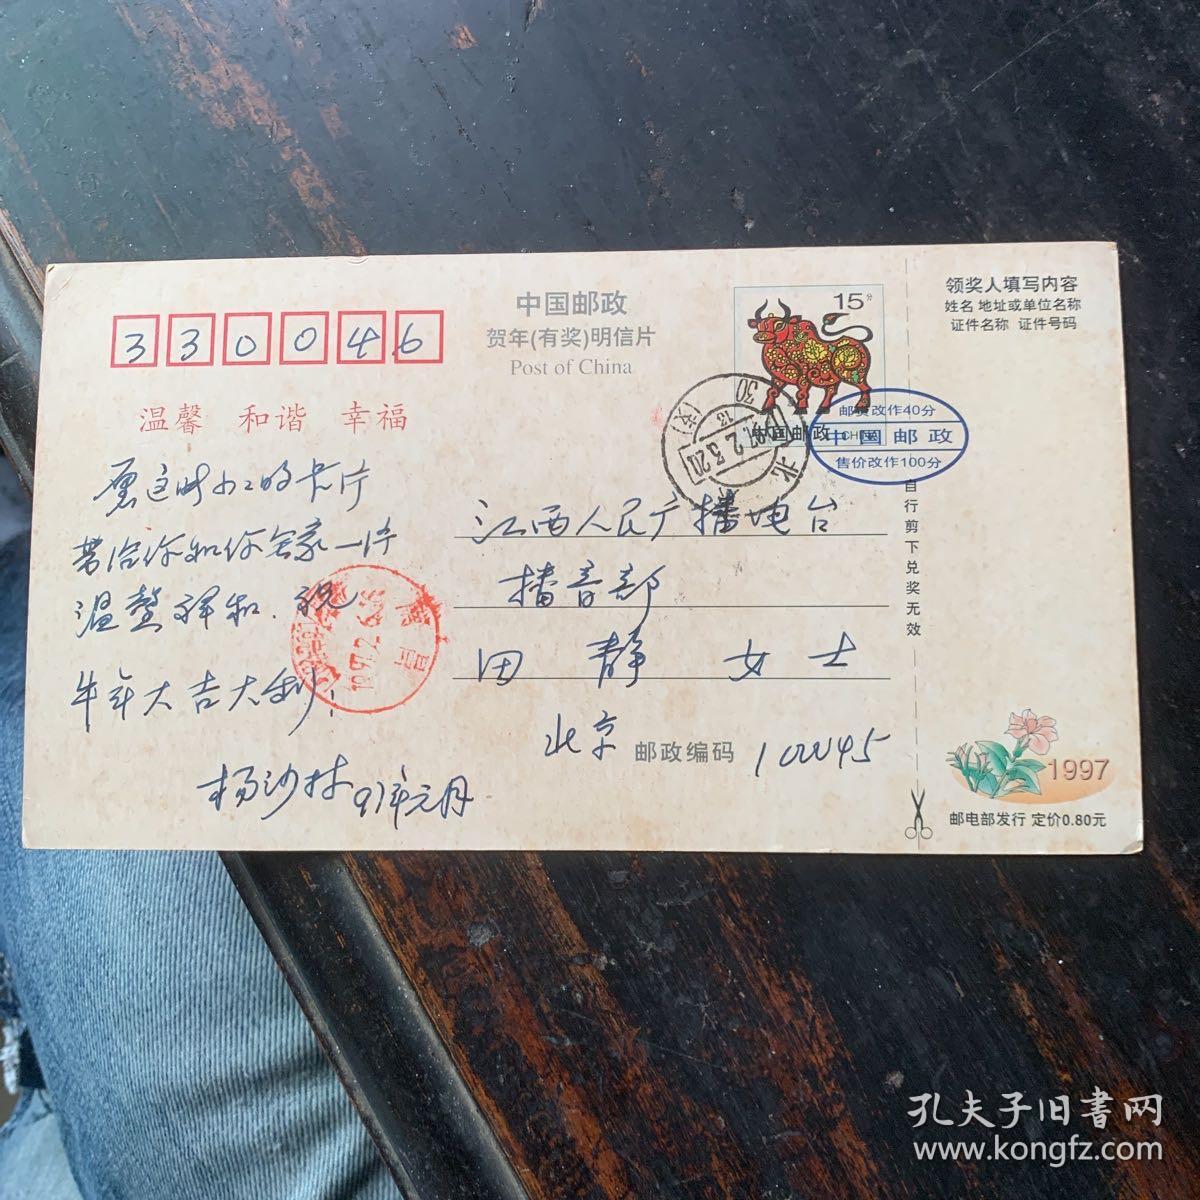 330046
中国邮政
贺年(有奖)明信片
Post of China
15分
中国邮政
CHINA
邮资改作40分
中国邮政
售价改作100分
领奖人填写内容
姓名 地址或单位名称
证件名称 证件号码
温馨 和谐 幸福
愿这小小的卡片
带给你和你全家一片
温馨祥和.祝
牛年大吉大利!
杨沙林 97年元月
江西人民广播电台
播音部
田静女士
北京 邮政编码 100045
自行剪下兑奖无效
1997
邮电部发行 定价0.80元
北
1997.2.6
南昌
孔夫子旧书网
www.kongfz.com